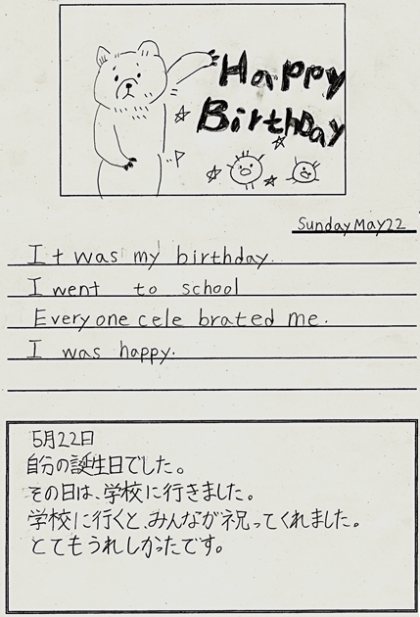 Happy
Birthday
Sunday May 22
It was my birthday.
I went to school
Everyone celebrated me.
I was happy.
5月22日
自分の誕生日でした。
その日は、学校に行きました。
学校に行くと、みんなが祝ってくれました。
とてもうれしかったです。